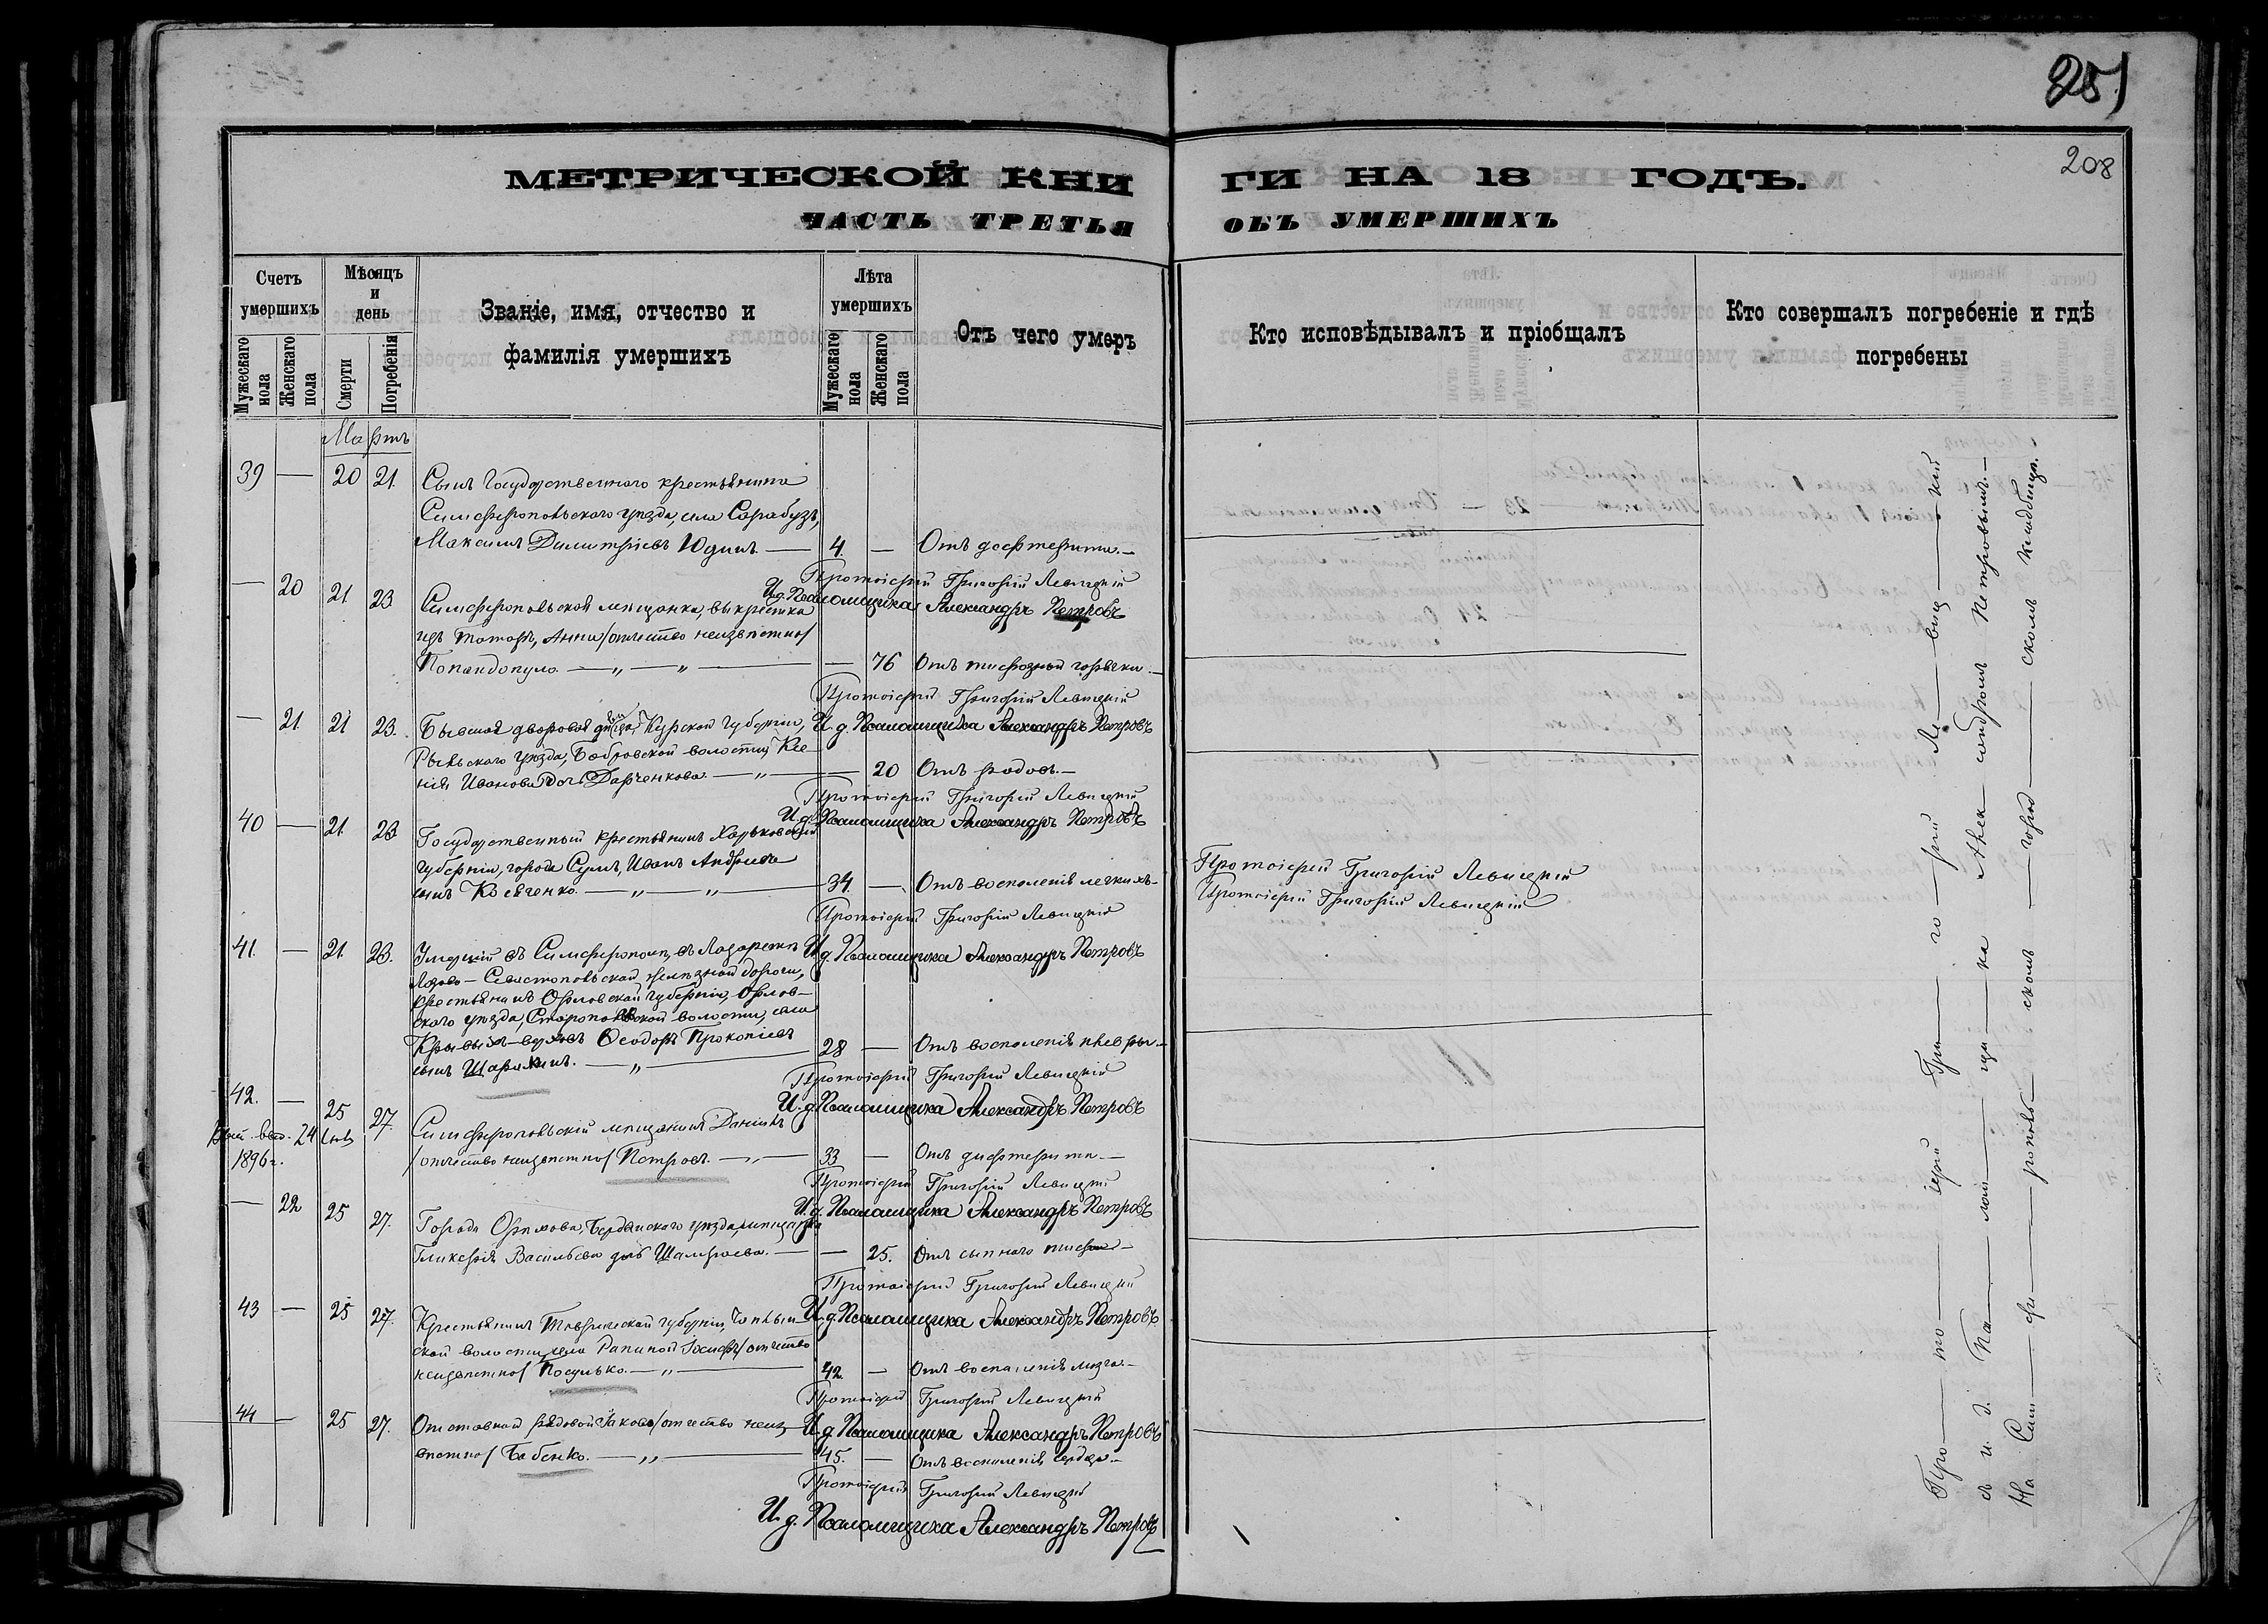 251
208
МЕТРИЧЕСКОЙ КНИ
ГИ НА 18 ГОДЪ.
ЧАСТЬ ТРЕТЬЯ
ОБЪ УМЕРШИХЪ
Счетъ умершихъ
Мужескаго пола
Женскаго пола
Мѣсяцъ и день
Смерти
Погребенія
Званіе, имя, отчество и
фамилія умершихъ
Лѣта умершихъ
Мужескаго пола
Женскаго пола
Отъ чего умеръ
Кто исповѣдывалъ и пріобщалъ
Кто совершалъ погребеніе и гдѣ
погребены
Мартъ
39 — 20 21. Сынъ Государственнаго крестьянина
Симферопольскаго уѣзда, села Сарабузъ,
Максимъ Димитріевъ Юдинъ — 4. — Отъ дифтерита. —
Протоіерей Григорій Левицкій
И. д. Псаломщика Александръ Петровъ
— 20 21 23 Симферопольская мѣщанка, выкрестка
изъ татаръ, Анна /отчество неизвѣстно/
Попандопуло. — „ — „ — 76 Отъ тифозной горячки. —
Протоіерей Григорій Левицкій
И. д. Псаломщика Александръ Петровъ
— 21 21 23. Бывшая дворовая Курской губерніи,
Рыльскаго уѣзда, Бобровской волости, Ксе
нія Иванова дочь Дарченкова. — „ — 20 Отъ родовъ. —
Протоіерей Григорій Левицкій
И. д. Псаломщика Александръ Петровъ
40 — 21. 23 Государственный крестьянинъ Харьковской
губерніи, города Сумъ, Иванъ Андреевъ
сынъ — „ — „ — 34. — Отъ воспаленія легкихъ —
Протоіерей Григорій Левицкій
И. д. Псаломщика Александръ Петровъ
41. — 21. 23. Умершій въ Симферополѣ, въ Лазаретѣ
Лозово-Севастопольской желѣзной дороги,
крестьянинъ Орловской губерніи, Орлов-
скаго уѣзда, волости, села
Ѳеодоръ Прокопіевъ
сынъ Шарыкинъ. — „ — 28 — Отъ воспаленія плевры. —
Протоіерей Григорій Левицкій
И. д. Псаломщика Александръ Петровъ
42. — 25 27. Симферопольскій мѣщанинъ Даніилъ
24
1896 г.
/отчество неизвѣстно/ Петровъ. — „ — 33 — Отъ дифтерита. —
Протоіерей Григорій Левицкій
И. д. Псаломщика Александръ Петровъ
— 22 25 27. Города Орѣхова, Бердянскаго уѣзда, мѣщанка
Гликерія Васильева дочь — — 25. Отъ сыпнаго тифа —
Протоіерей Григорій Левицкій
И. д. Псаломщика Александръ Петровъ
43 — 25 27. Крестьянинъ Таврической губерніи,
ской волости, села Іосифъ /отчество
неизвѣстно/ Посулько. — „ — 42. — Отъ воспаленія мозга. —
Протоіерей Григорій Левицкій
И. д. Псаломщика Александръ Петровъ
44 — 25 27. Отставной рядовой Яковъ /отчество неиз
вѣстно/ Бабенко. — „ — 45. — Отъ воспаленія сердца. —
Протоіерей Григорій Левицкій
И. д. Псаломщика Александръ Петровъ
Протоіерей Григорій Левицкій
Протоіерей Григорій Левицкій
Про — то — іерей Гри — го — рій Ле — виц — кій
съ и. д. Пса — лом — щи — ка Алек — сандромъ Петровымъ. —
На Сим — фе — рополь — скомъ — город — скомъ кладбищѣ.